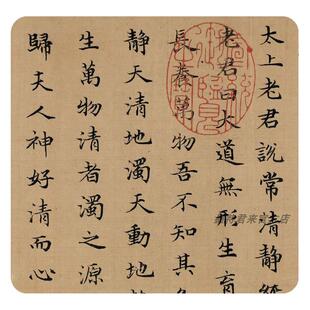 太上老君說常清靜經
老君曰大道無形生育
長養萬物吾不知其
靜天清地濁天動地
生萬物清者濁之源
歸夫人神好清而心